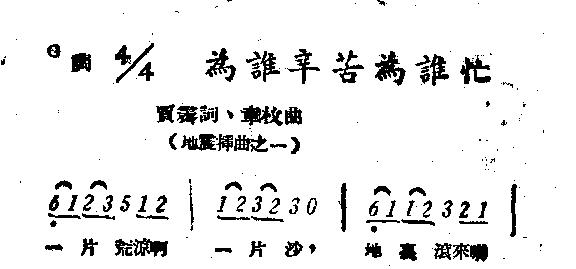 G調 4/4 為誰辛苦為誰忙
賈霽詞、章枚曲
(地震揷曲之一)
6123512 | 123230 | 6112321 |
一片荒涼啊 一片沙, 地裏滾來